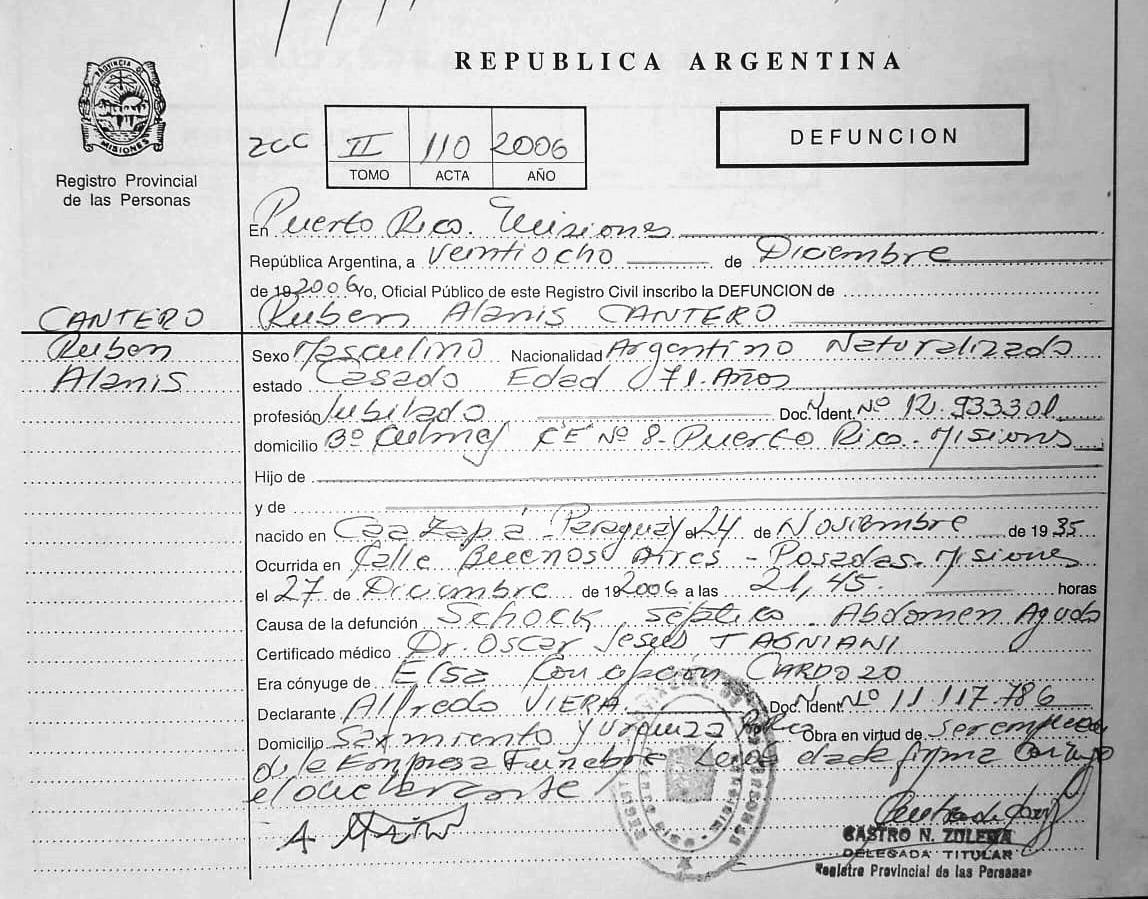 REPUBLICA ARGENTINA
PROVINCIA DE MISIONES
Registro Provincial
de las Personas
II 110 2006
TOMO ACTA AÑO
DEFUNCION
En Puerto Rico. Misiones
República Argentina, a veintiocho de Diciembre
de 192006 Yo, Oficial Público de este Registro Civil inscribo la DEFUNCION de
CANTERO Ruben Alanis CANTERO
Ruben Sexo Masculino Nacionalidad Argentino Naturalizado
Alanis estado Casado Edad 71 Años
profesión Jubilado Doc. Ident. Nº 12.933301
domicilio Bº Nº 8-Puerto Rico-Misions
Hijo de
y de
nacido en Caa Zapá Paraguay el 24 de Noviembre de 1935
Ocurrida en Calle Buenos Aires - Posadas. Misiones
el 27 de Diciembre de 192006 a las 21,45. horas
Causa de la defunción Schock septico Abdomen Agudo
Certificado médico Dr. Oscar Jesus TAGNIANI
Era cónyuge de Elsa Concepcion CARDOZO
Declarante Alfredo VIERA Doc. Ident. Nº 11.117.786
Domicilio Sarmiento y Urquiza Obra en virtud de ser empleado
de la Empresa Funebre firma Conmigo
el declarante
CASTRO N. ZULEMA
DELEGADA TITULAR
Registro Provincial de las Personas